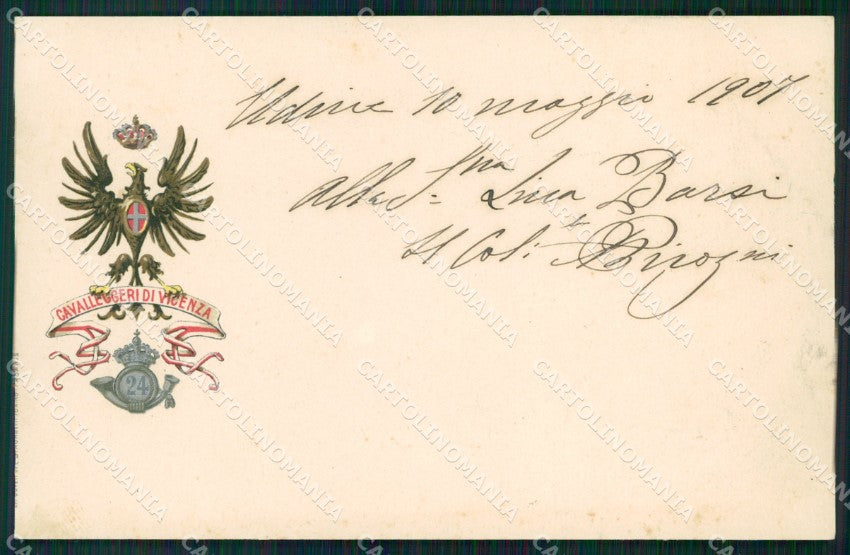 Udine 10 maggio 1907
Alla S.na Lina Barsi
Il Col:
CAVALLEGGERI DI VICENZA
24
CARTOLINOMANIA